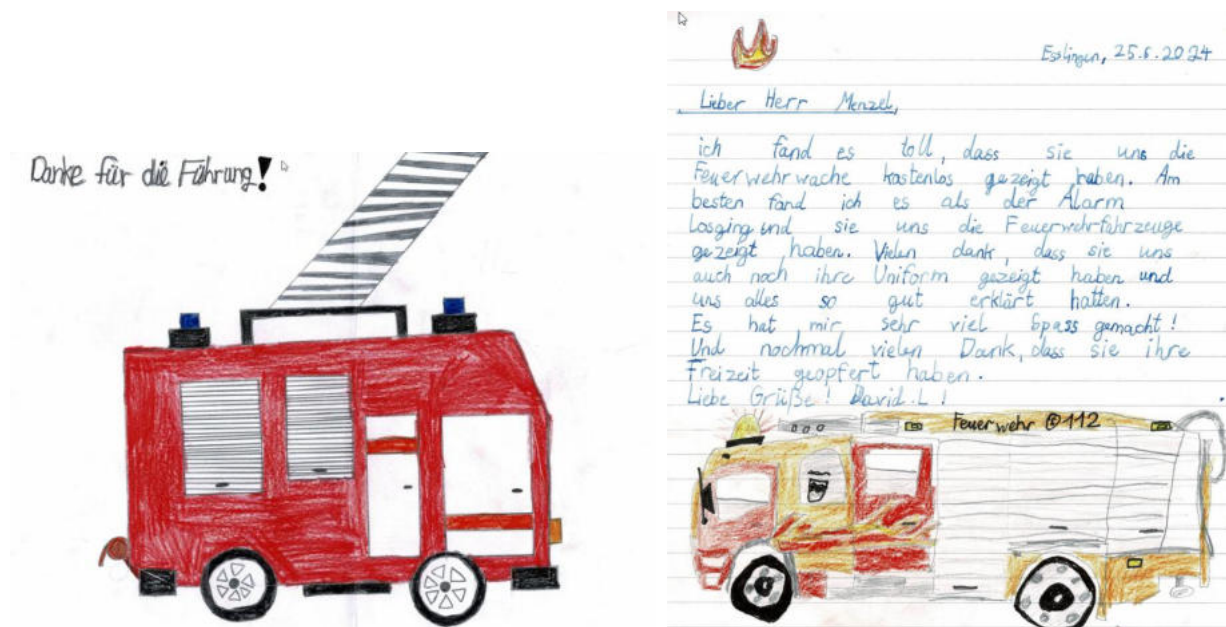 Danke für die Führung!
Esslingen, 25.6.2024
Lieber Herr Menzel,
ich fand es toll, dass sie uns die
Feuerwehrwache kostenlos gezeigt haben. Am
besten fand ich es als der Alarm
losging und sie uns die Feuerwehrfahrzeuge
gezeigt haben. Vielen dank, dass sie uns
auch noch ihre Uniform gezeigt haben und
uns alles so gut erklärt hatten.
Es hat mir sehr viel Spass gemacht!
Und nochmal vielen Dank, dass sie ihre
Freizeit geopfert haben.
Liebe Grüße! David.L!
Feuerwehr ✆112